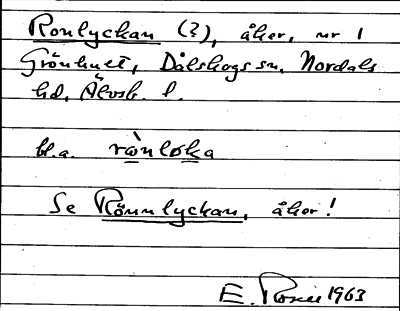 Ronlyckan (?), åker, nr 1
Grönhult, Dalskogs sn, Nordals
hd, Älvsb. l.
bl.a. rønløka
Se Rönnlyckan, åker!
E. Rosén 1963